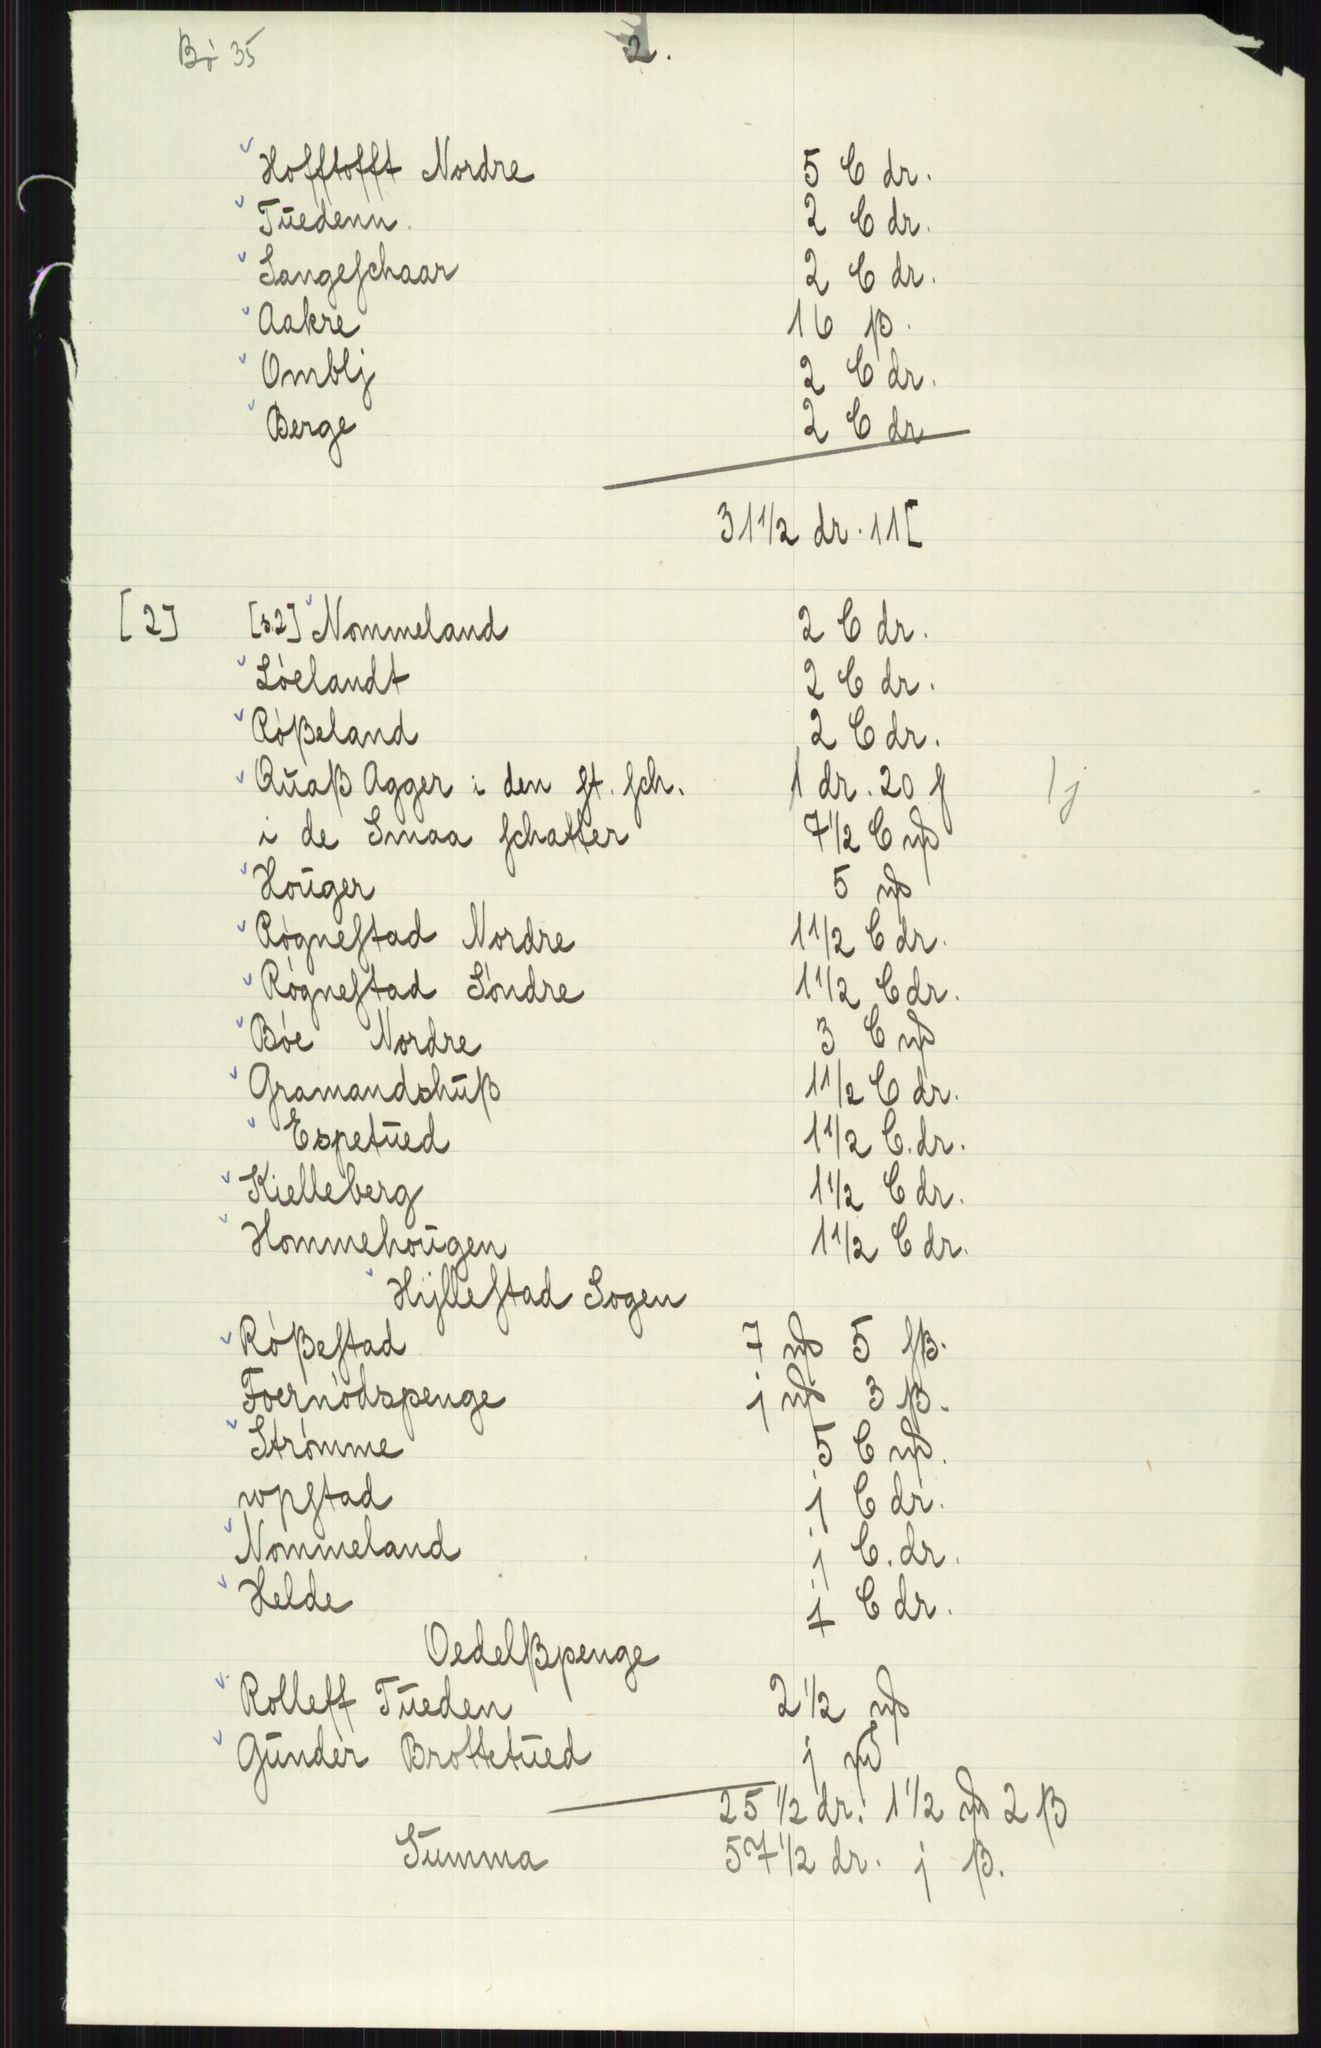 Bö 35 2.
Hofftofft Nordre 5 C dr.
Tŭedenn. 2 C dr.
Langeschaar 2 C dr.
Aakre 16 β.
Omblj 2 C dr.
Berge 2 C dr
31 1/2 dr. 11[
[2] [s.2] Nommeland 2 C dr.
Lóelandt 2 C dr.
Róßeland 2 C dr.
Qŭaß Agger i den st. sch. 1 dr. 20 f
i de Smaa schatter 7 1/2 C mƥ
Hoŭger 5 mƥ
Rógnestad Nordre 1 1/2 C dr.
Rógnestad Sóndre 1 1/2 C dr.
Bóe Nordre 3 C mƥ
Gramandshŭß 1 1/2 C dr.
Espetŭed 1 1/2 C. dr.
Kielleberg 1 1/2 C dr.
Hommehoŭgen 1 1/2 C dr.
Hÿllestad Sogen
Róßestad 7 mƥ 5 sß.
Foernódspenge j mƥ 3 ß.
Strómme 5 C mƥ.
wpstad j C dr.
Nommeland j C. dr.
Helde 1 C dr.
Oedelßpenge
Rolleff Tŭeden 2 1/2 mƥ
Gŭnder Brottetŭed j mƥ
25 1/2 dr. 1 1/2 mƥ 2 ß
Sŭmma 57 1/2 dr. j ß.